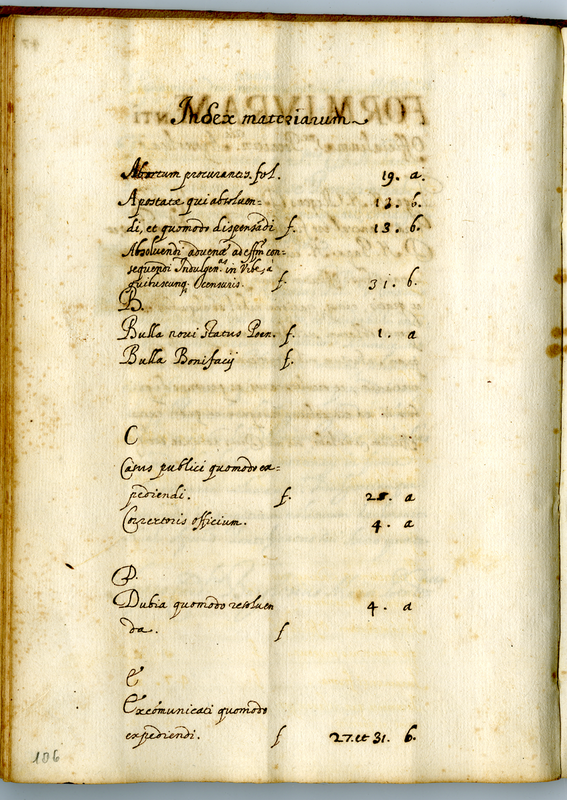 Index materiarum
Abortum procurantes. fol. 19. a.
Apostatæ qui absoluen=
di, et quomodo dispensãdi f. 13. b.
13. b.
Absoluendi aduenæ ad effm con=
sequendi Indulgen.as in Vrbe, à
quibuscunq. censuris. f. 31. b.
B.
Bulla noui status Poen. f. 1. a
Bulla Bonifacij f.
C
Casus publici quomodo ex=
pediendi. f. 28. a
Correctoris officium. 4. a
D.
Dubia quomodo resoluen 4. a
da. f
E
Excõmunicati quomodo
expediendi. f 27. et 31. b.
106